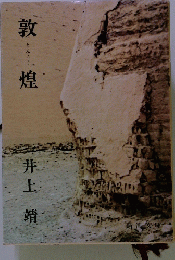 敦煌
井上靖